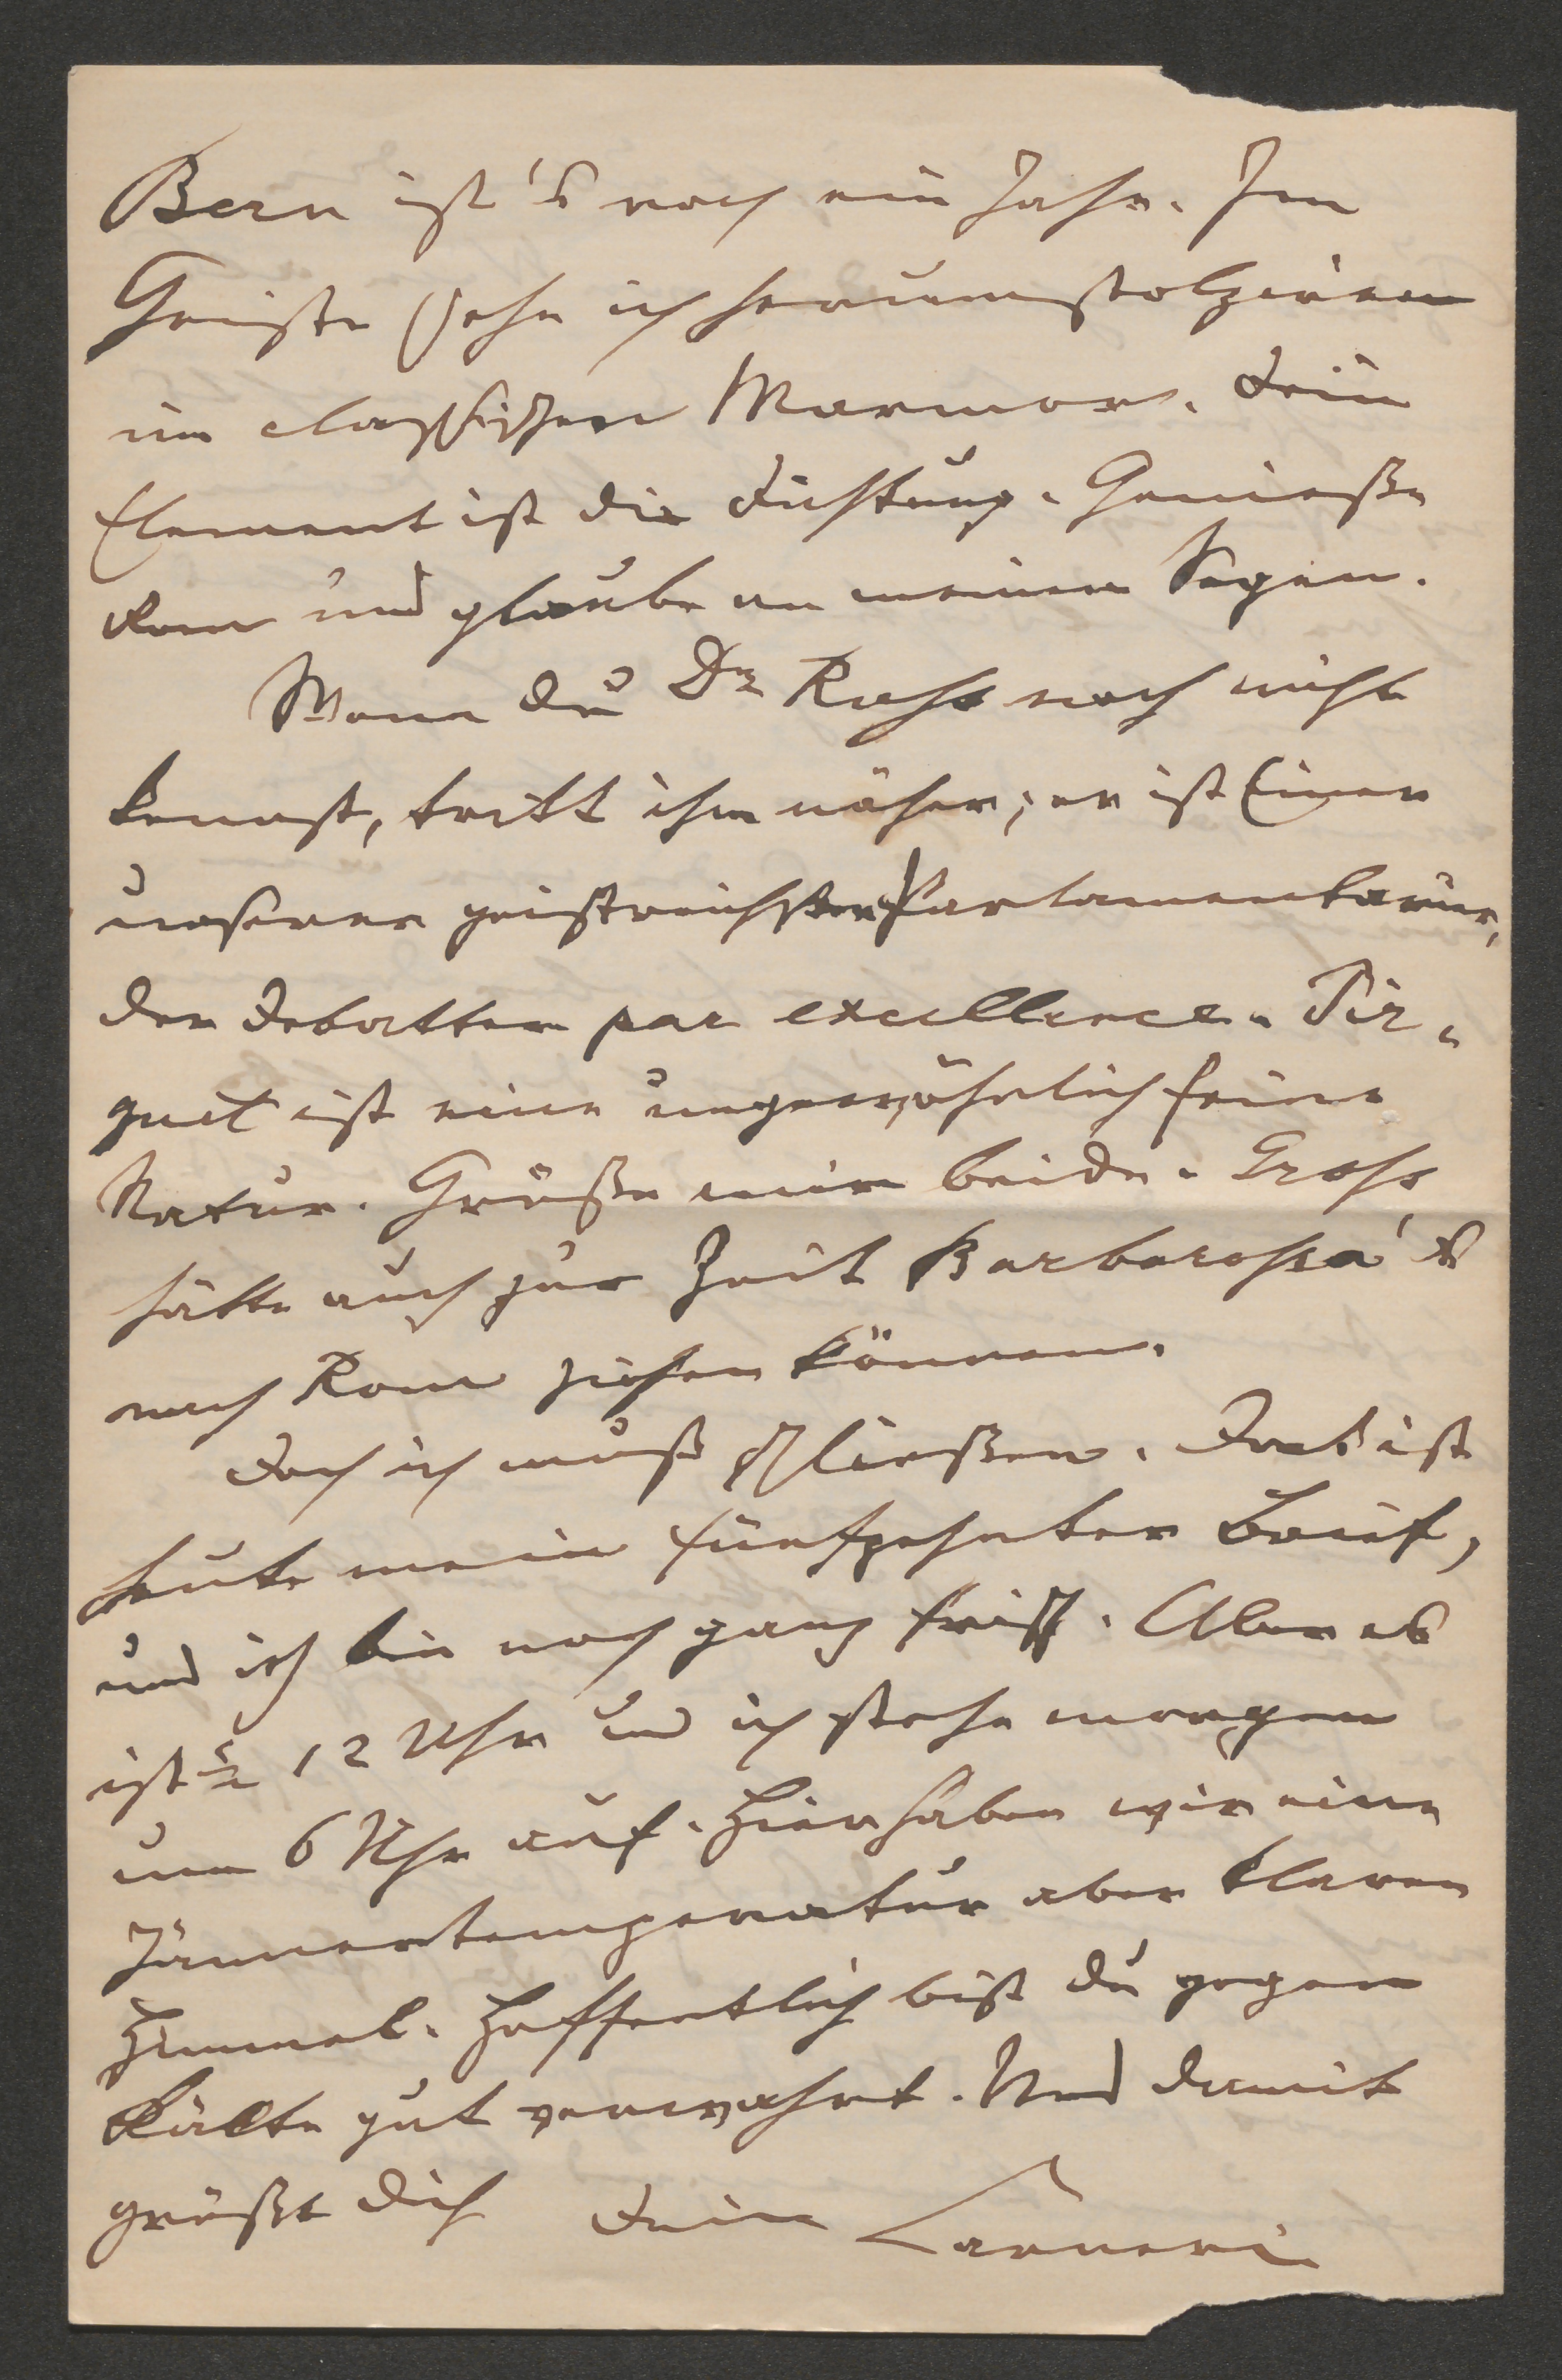 Bern ist's noch ein Jahr. Im
Geiste sehe ich herumstolziren
im classischen Marmor. Dein
Element ist die Dichtung. Genieße
Rom und glaube an meinen Segen.
Wenn du Dr Russ noch nicht
kennst, tritt ihm näher; er ist Einer
unserer geistreichsten Parlamentarier,
der Debatter par excellence. Pir-
quet ist eine ungewöhnlich feine
Natur. Grüße mir beide. Gross
hätte auch zur Zeit Barbarossa's
nach Rom ziehen können.
Doch ich muß schließen. Das ist
heute mein fünfzehnter Brief,
und ich bin noch ganz frisch. Aber es
ist ½ 12 Uhr und ich stehe morgen
um 6 Uhr auf. Hier haben wir eine
Jännertemperatur aber klaren
Himmel. Hoffentlich bist du gegen
Kälte gut verwahrt. Und damit
grüßt dich Dein Carneri